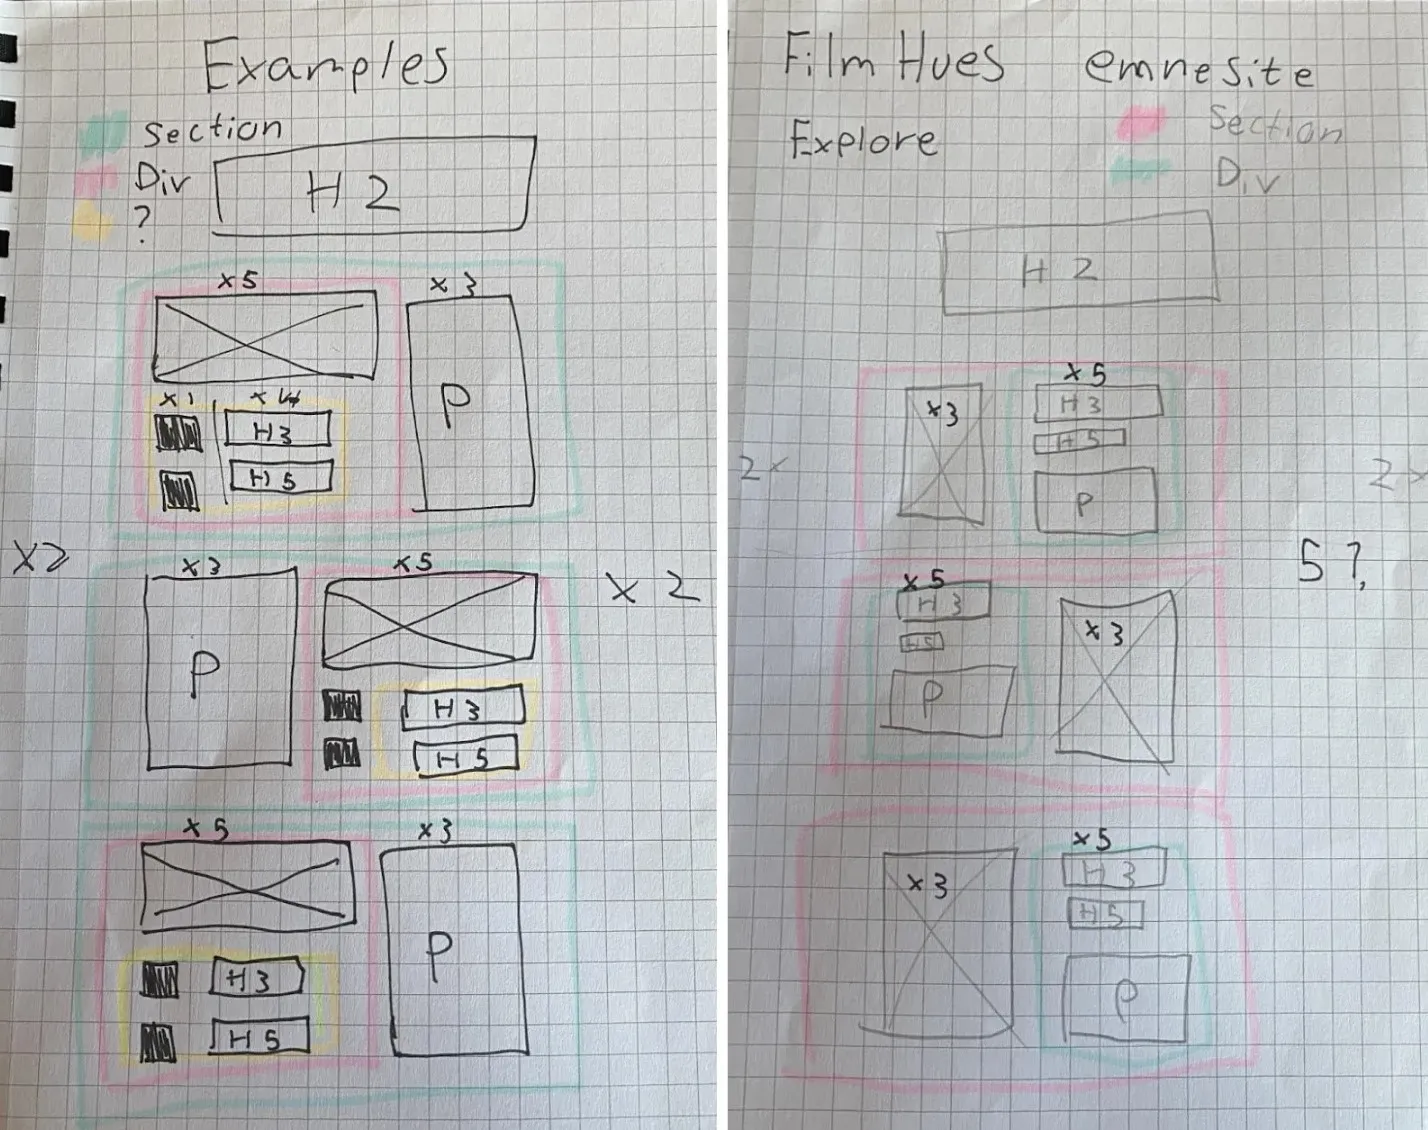 Examples
Section
Div
?
H 2
x5
x 3
x 1
x 4
P
H3
H 5
x2
x3
x5
x 2
P
H 3
H 5
x 5
x3
P
H 3
H 5
Film Hues emnesite
Explore
Section
Div
H 2
x 5
x3
H 3
H 5
2x
2x
P
5 ?
x5
H 3
H5
x3
P
x5
x3
H 3
H5
P